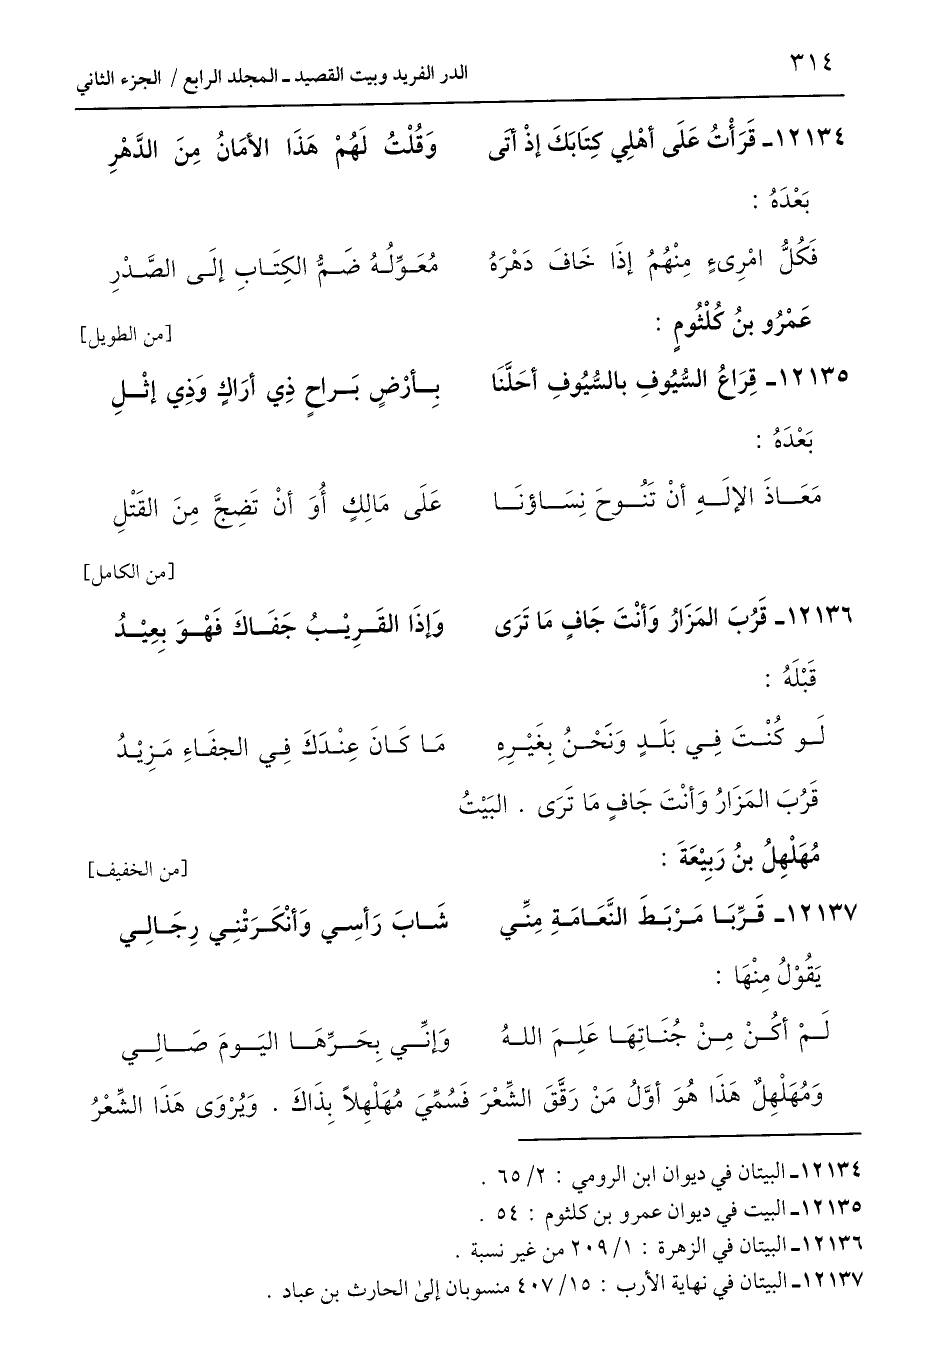 ٣١٤
الدر الفريد وبيت القصيد ـ المجلد الرابع / الجزء الثاني
١٢١٣٤ـ قَرَأْتُ عَلَى أهْلِي كِتَابَكَ إذْ أتَى وَقُلْتُ لَهُمْ هَذَا الأمَانُ مِنَ الدَّهْرِ
بَعْدَهُ :
فَكُلُّ امْرِىءٍ مِنْهُمُ إذَا خَافَ دَهْرَهُ مُعَوِّلُهُ ضَمُّ الكِتَابِ إلَى الصَّدْرِ
عَمْرُو بنُ كُلْثُومٍ :
[من الطويل]
١٢١٣٥ـ قِرَاعُ السُّيُوفِ بالسُّيُوفِ أحَلَّنَا بِأرْضٍ بَراحٍ ذِي أرَاكٍ وَذِي إثْلِ
بَعْدَهُ :
مَعَاذَ الإلَهِ أنْ تَنُوحَ نِسَاؤنَا عَلَى مَالِكٍ أُوَ أنْ تَضِجَّ مِنَ القَتْلِ
[من الكامل]
١٢١٣٦ـ قَرُبَ المَزَارُ وَأنْتَ جَافٍ مَا تَرَى وَإذَا القَرِيْبُ جَفَاكَ فَهْوَ بِعِيْدُ
قَبْلَهُ :
لَو كُنْتَ فِي بَلَدٍ وَنَحْنُ بِغَيْرِهِ مَا كَانَ عِنْدَكَ فِي الجفَاءِ مَزِيْدُ
قَرُبَ المَزَارُ وَأنْتَ جَافٍ مَا تَرَى . البَيْتُ
مُهَلْهِلُ بنُ رَبِيْعَةَ :
[من الخفيف]
١٢١٣٧ـ قَرِّبَا مَرْبَطَ النَّعَامَةِ مِنِّي شَابَ رَأسِي وَأنْكَرَتْنِي رِجَالِي
يَقُوْلُ مِنْهَا :
لَمْ أكُنْ مِنْ جُنَاتِهَا عَلِمَ اللهُ وَإنِّي بِحَرِّهَا اليَومَ صَالِي
وَمُهَلْهِلٌ هَذَا هُوَ أوَّلُ مَنْ رَقَّقَ الشِّعْرَ فَسُمِّيَ مُهَلْهِلاً بِذَاكَ . وَيُرْوَى هَذَا الشِّعْرُ
١٢١٣٤ـ البيتان في ديوان ابن الرومي : ٢/ ٦٥ .
١٢١٣٥ـ البيت في ديوان عمرو بن كلثوم : ٥٤ .
١٢١٣٦ـ البيتان في الزهرة : ١/ ٢٠٩ من غير نسبة .
١٢١٣٧ـ البيتان في نهاية الأرب : ١٥/ ٤٠٧ منسوبان إلىٰ الحارث بن عباد .